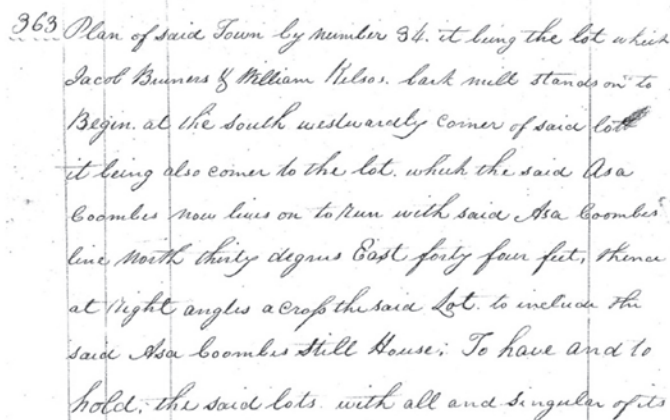 363 Plan of said Town by number 34. it being the lot which
Jacob Bruners & William Kelsos. bark mill stands on to
Begin. at the south westwardly corner of said lott
it being also corner to the lot. which the said Asa
Coombes now lives on to run with said Asa Coombes
line North thirty degrees East forty four feet, thence
at Right angles across the said Lot. to include the
said Asa Coombes Still House; To have and to
hold; the said lots. with all and singular of its